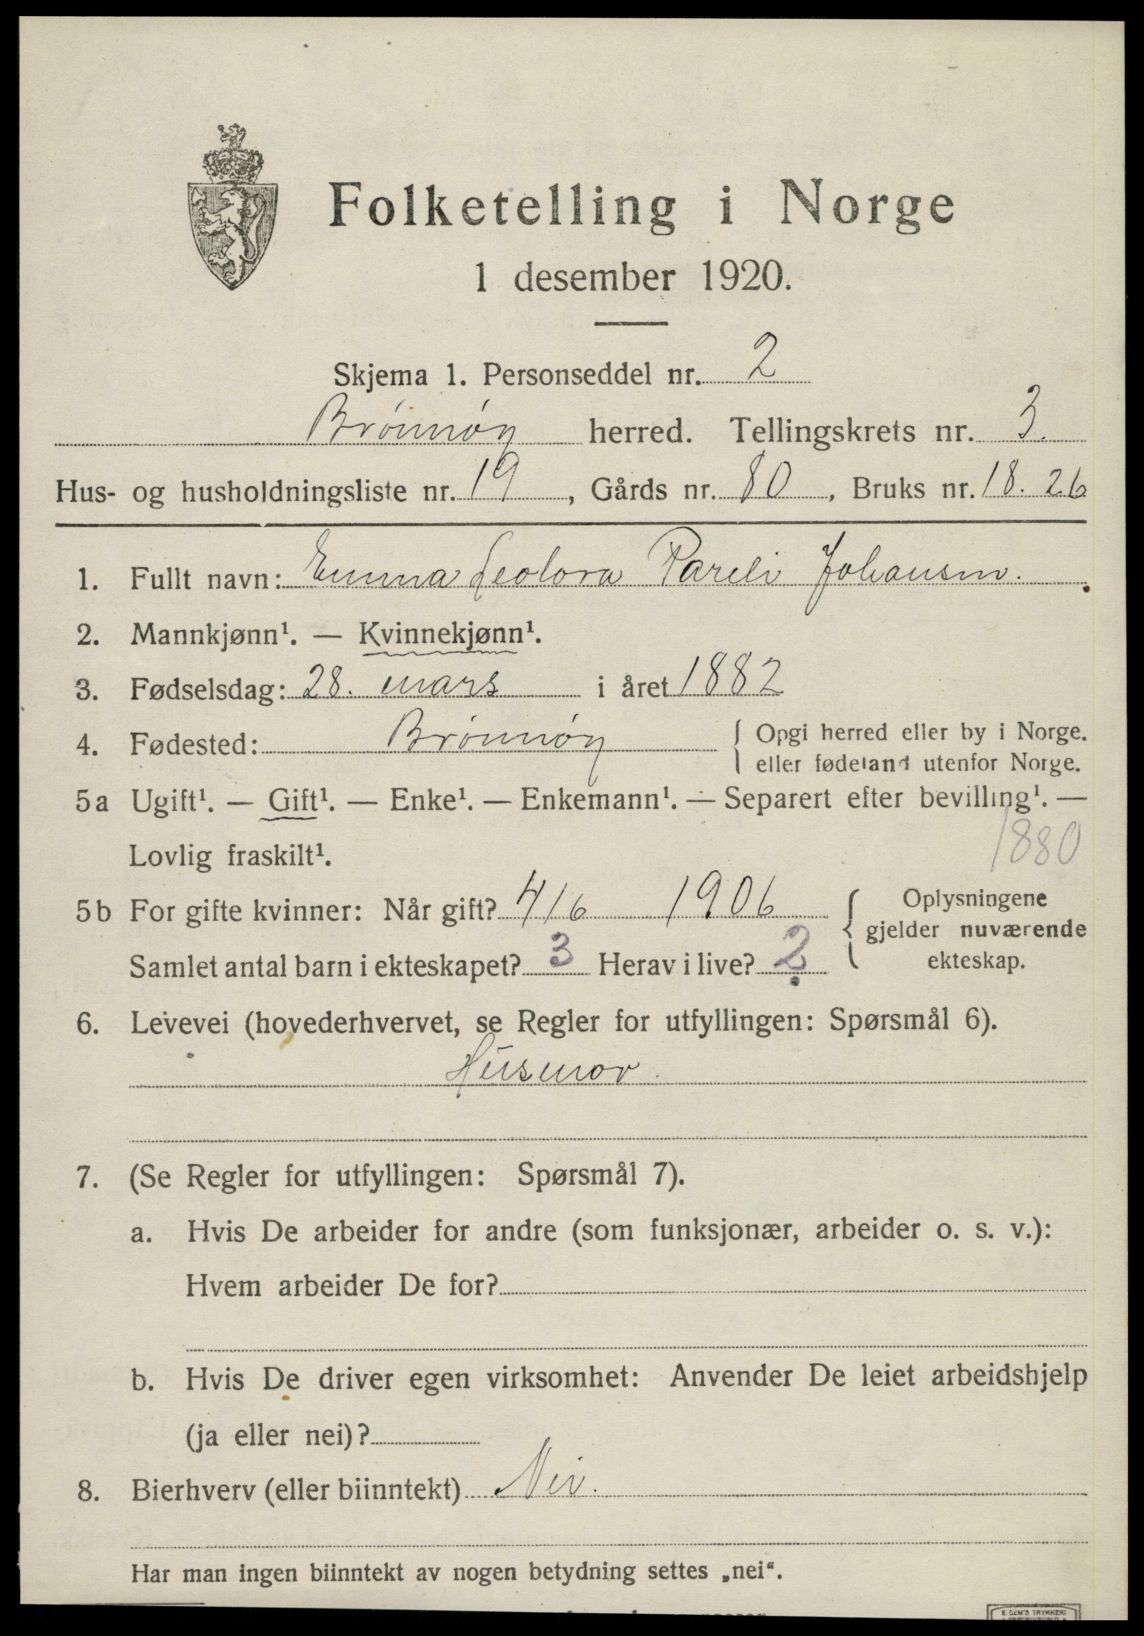 Folketelling i Norge
1 desember 1920.
Skjema 1. Personseddel nr. 2
Brönnöy herred. Tellingskrets nr. 3.
Hus- og husholdningsliste nr. 19, Gårds nr. 80, Bruks nr. 18. 26
1. Fullt navn: Emma Leolora Pareli Johansen.
2. Mannkjønn¹. — Kvinnekjønn¹.
3. Fødselsdag: 28. mars i året 1882
4. Fødested: Brönnöy { Opgi herred eller by i Norge.
eller fødeland utenfor Norge.
5 a Ugift¹. — Gift¹. — Enke¹. — Enkemann¹. — Separert efter bevilling¹. —
Lovlig fraskilt¹. 1880
5 b For gifte kvinner: Når gift? 4/6 1906 { Oplysningene
gjelder nuværende
Samlet antal barn i ekteskapet? 3 Herav i live? 2 ekteskap.
6. Levevei (hovederhvervet, se Regler for utfyllingen: Spørsmål 6).
Husmor.
7. (Se Regler for utfyllingen: Spørsmål 7).
a. Hvis De arbeider for andre (som funksjonær, arbeider o. s. v.):
Hvem arbeider De for?
b. Hvis De driver egen virksomhet: Anvender De leiet arbeidshjelp
(ja eller nei)?
8. Bierhverv (eller biinntekt) Nei.
Har man ingen biinntekt av nogen betydning settes „nei“.